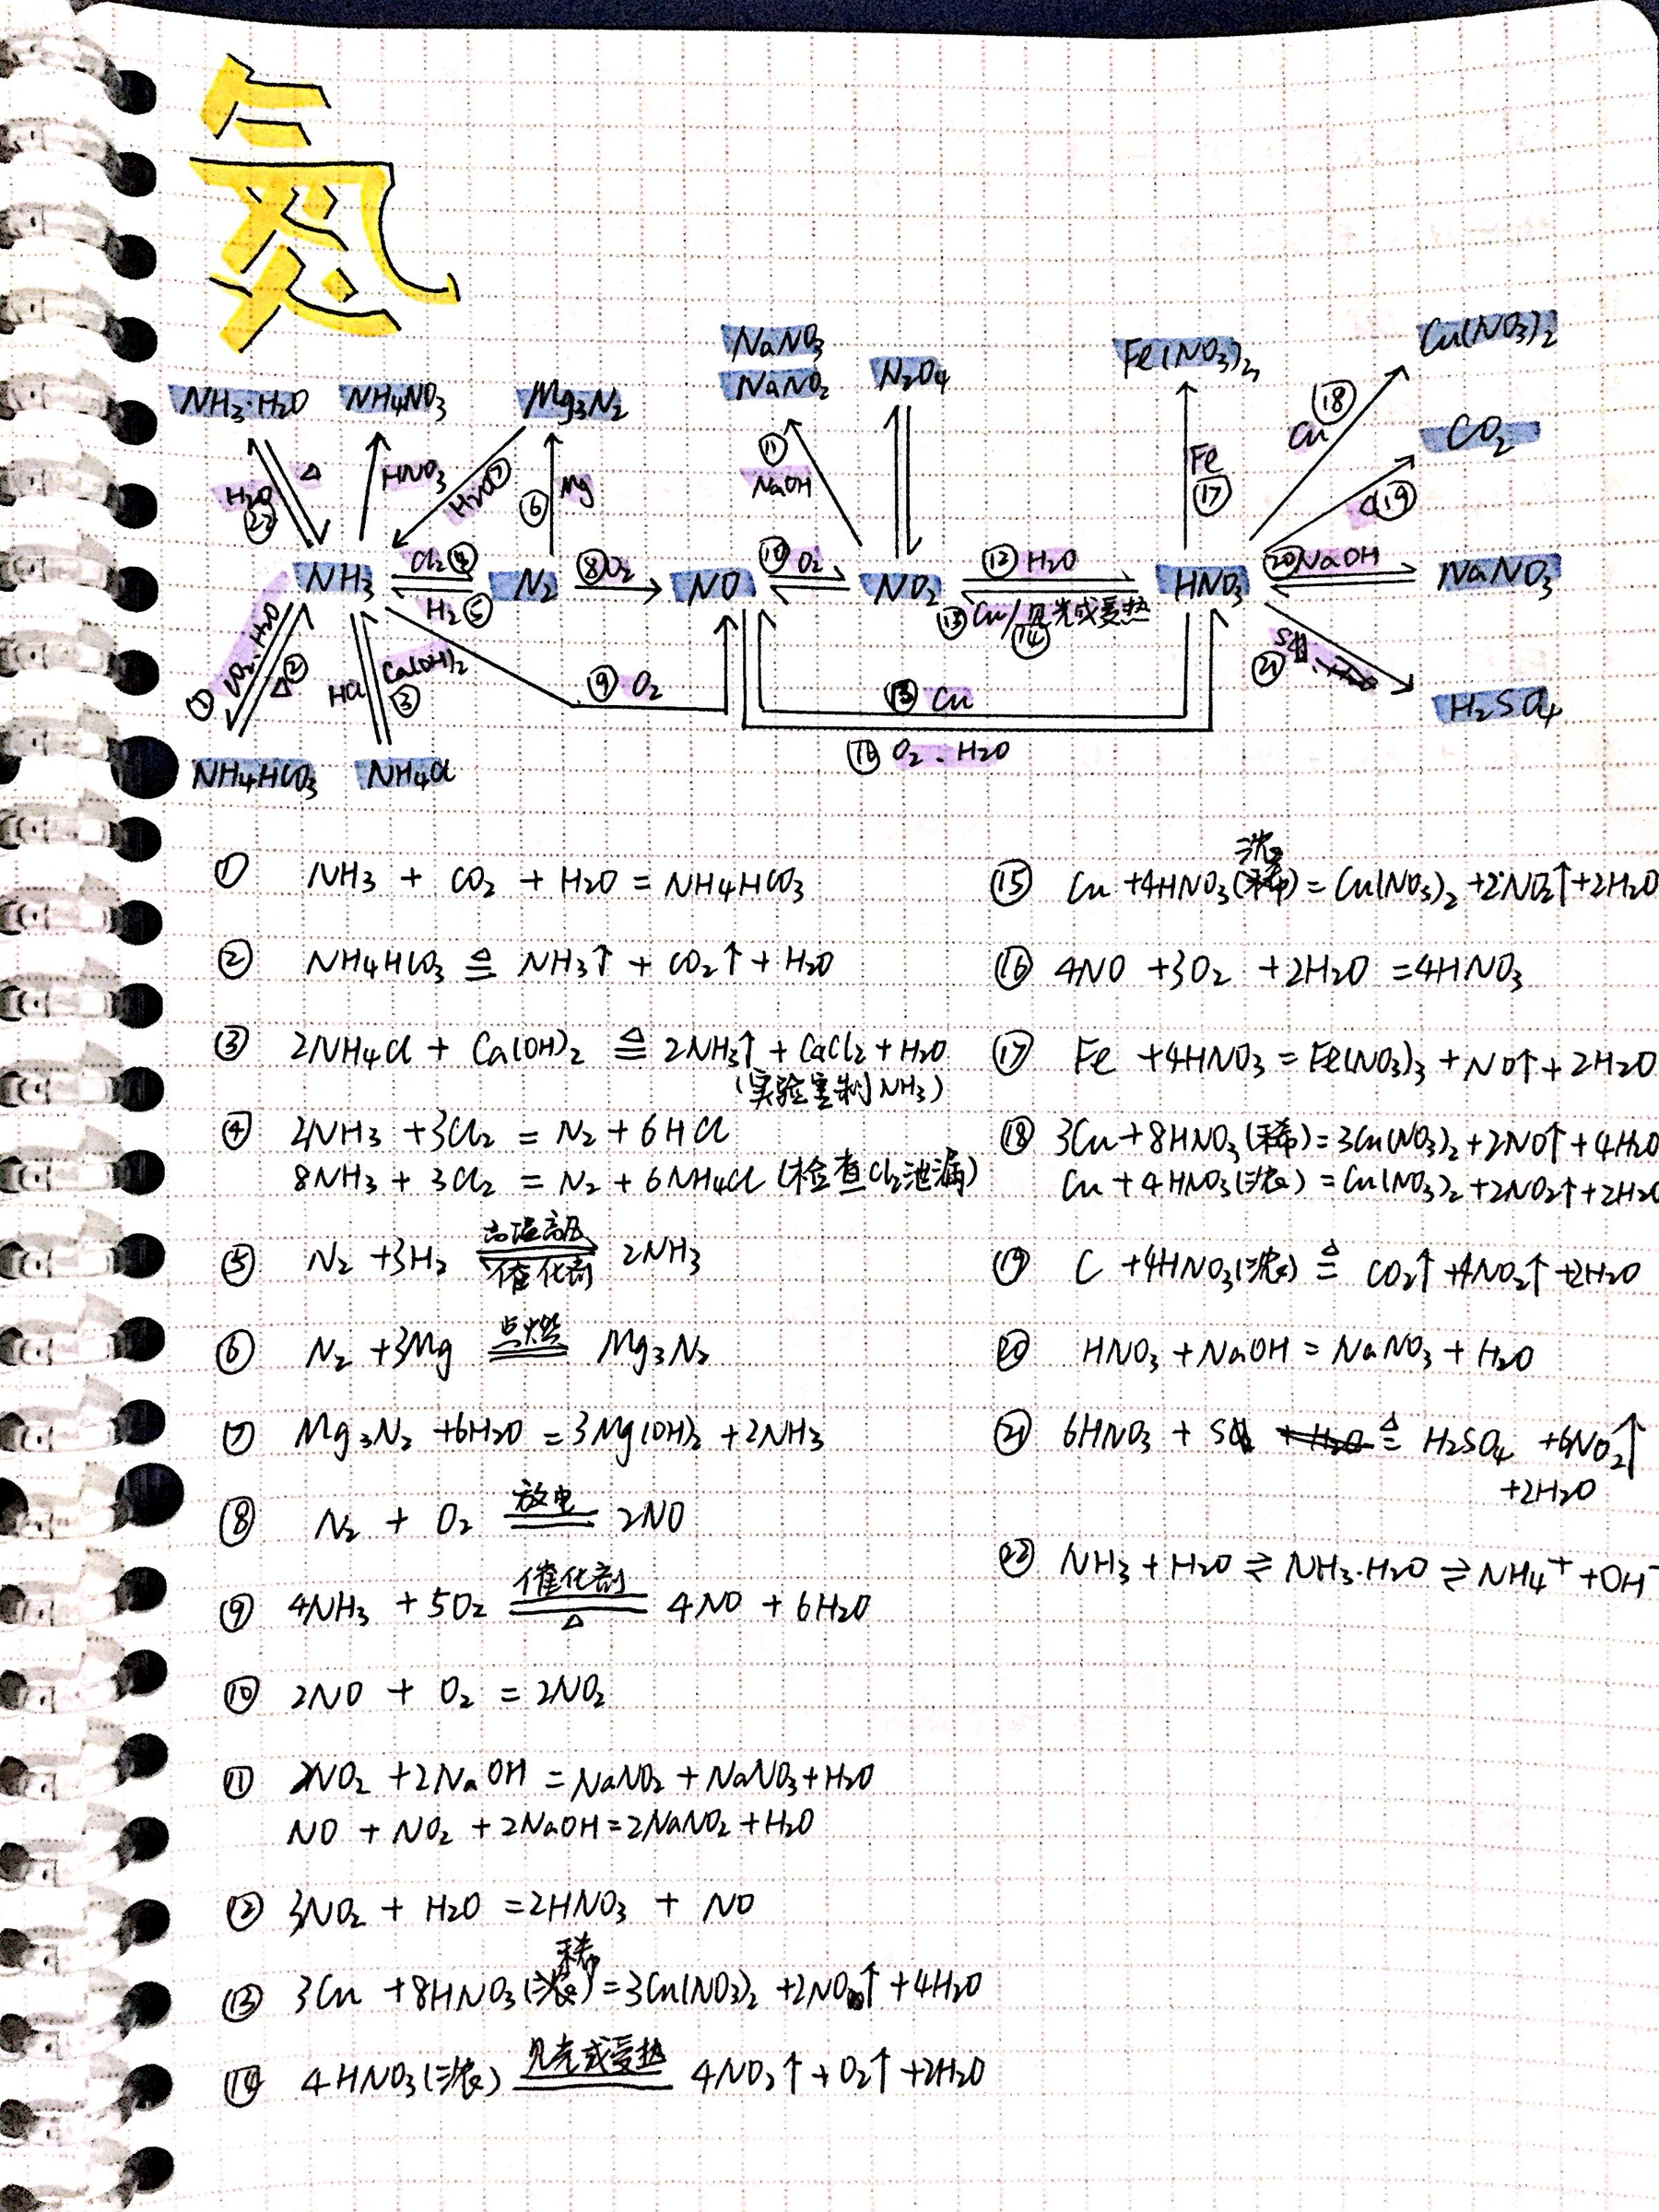 氮
NaNO3
NaNO2
N2O4
Fe(NO3)2,
Cu(NO3)2
NH3·H2O
NH4NO3
Mg3N2
CO2
H2O
㉒
△
HNO3
H2O⑦
⑥
Mg
⑪
NaOH
Fe
⑰
Cu
⑱
C⑲
NH3
Cl2④
H2⑤
N2
⑧O2
NO
⑩O2
NO2
⑫H2O
⑬Cu/见光或受热
⑭
HNO3
⑳NaOH
NaNO3
① CO2、H2O
△②
HCl
Ca(OH)2
③
⑨ O2
⑬ Cu
⑯ O2、H2O
㉑
S
H2SO4
NH4HCO3
NH4Cl
① NH3 + CO2 + H2O = NH4HCO3
② NH4HCO3 ≜ NH3↑ + CO2↑ + H2O
③ 2NH4Cl + Ca(OH)2 ≜ 2NH3↑ + CaCl2 + H2O
(实验室制NH3)
④ 2NH3 + 3Cl2 = N2 + 6HCl
8NH3 + 3Cl2 = N2 + 6NH4Cl (检查Cl2泄漏)
高温高压
⑤ N2 + 3H2 ═ 2NH3
催化剂
点燃
⑥ N2 + 3Mg ═ Mg3N2
⑦ Mg3N2 + 6H2O = 3Mg(OH)2 + 2NH3
放电
⑧ N2 + O2 ═ 2NO
催化剂
⑨ 4NH3 + 5O2 ═ 4NO + 6H2O
△
⑩ 2NO + O2 = 2NO2
⑪ 2NO2 + 2NaOH = NaNO2 + NaNO3 + H2O
NO + NO2 + 2NaOH = 2NaNO2 + H2O
⑫ 3NO2 + H2O = 2HNO3 + NO
稀
⑬ 3Cu + 8HNO3(浓) = 3Cu(NO3)2 + 2NO↑ + 4H2O
见光或受热
⑭ 4HNO3(浓) ═ 4NO2↑ + O2↑ + 2H2O
浓
⑮ Cu + 4HNO3(稀) = Cu(NO3)2 + 2NO2↑ + 2H2O
⑯ 4NO + 3O2 + 2H2O = 4HNO3
⑰ Fe + 4HNO3 = Fe(NO3)3 + NO↑ + 2H2O
⑱ 3Cu + 8HNO3(稀) = 3Cu(NO3)2 + 2NO↑ + 4H2O
Cu + 4HNO3(浓) = Cu(NO3)2 + 2NO2↑ + 2H2O
⑲ C + 4HNO3(浓) ≜ CO2↑ + 4NO2↑ + 2H2O
⑳ HNO3 + NaOH = NaNO3 + H2O
㉑ 6HNO3 + S ≜ H2SO4 + 6NO2↑
+2H2O
㉒ NH3 + H2O ⇌ NH3·H2O ⇌ NH4⁺ + OH⁻